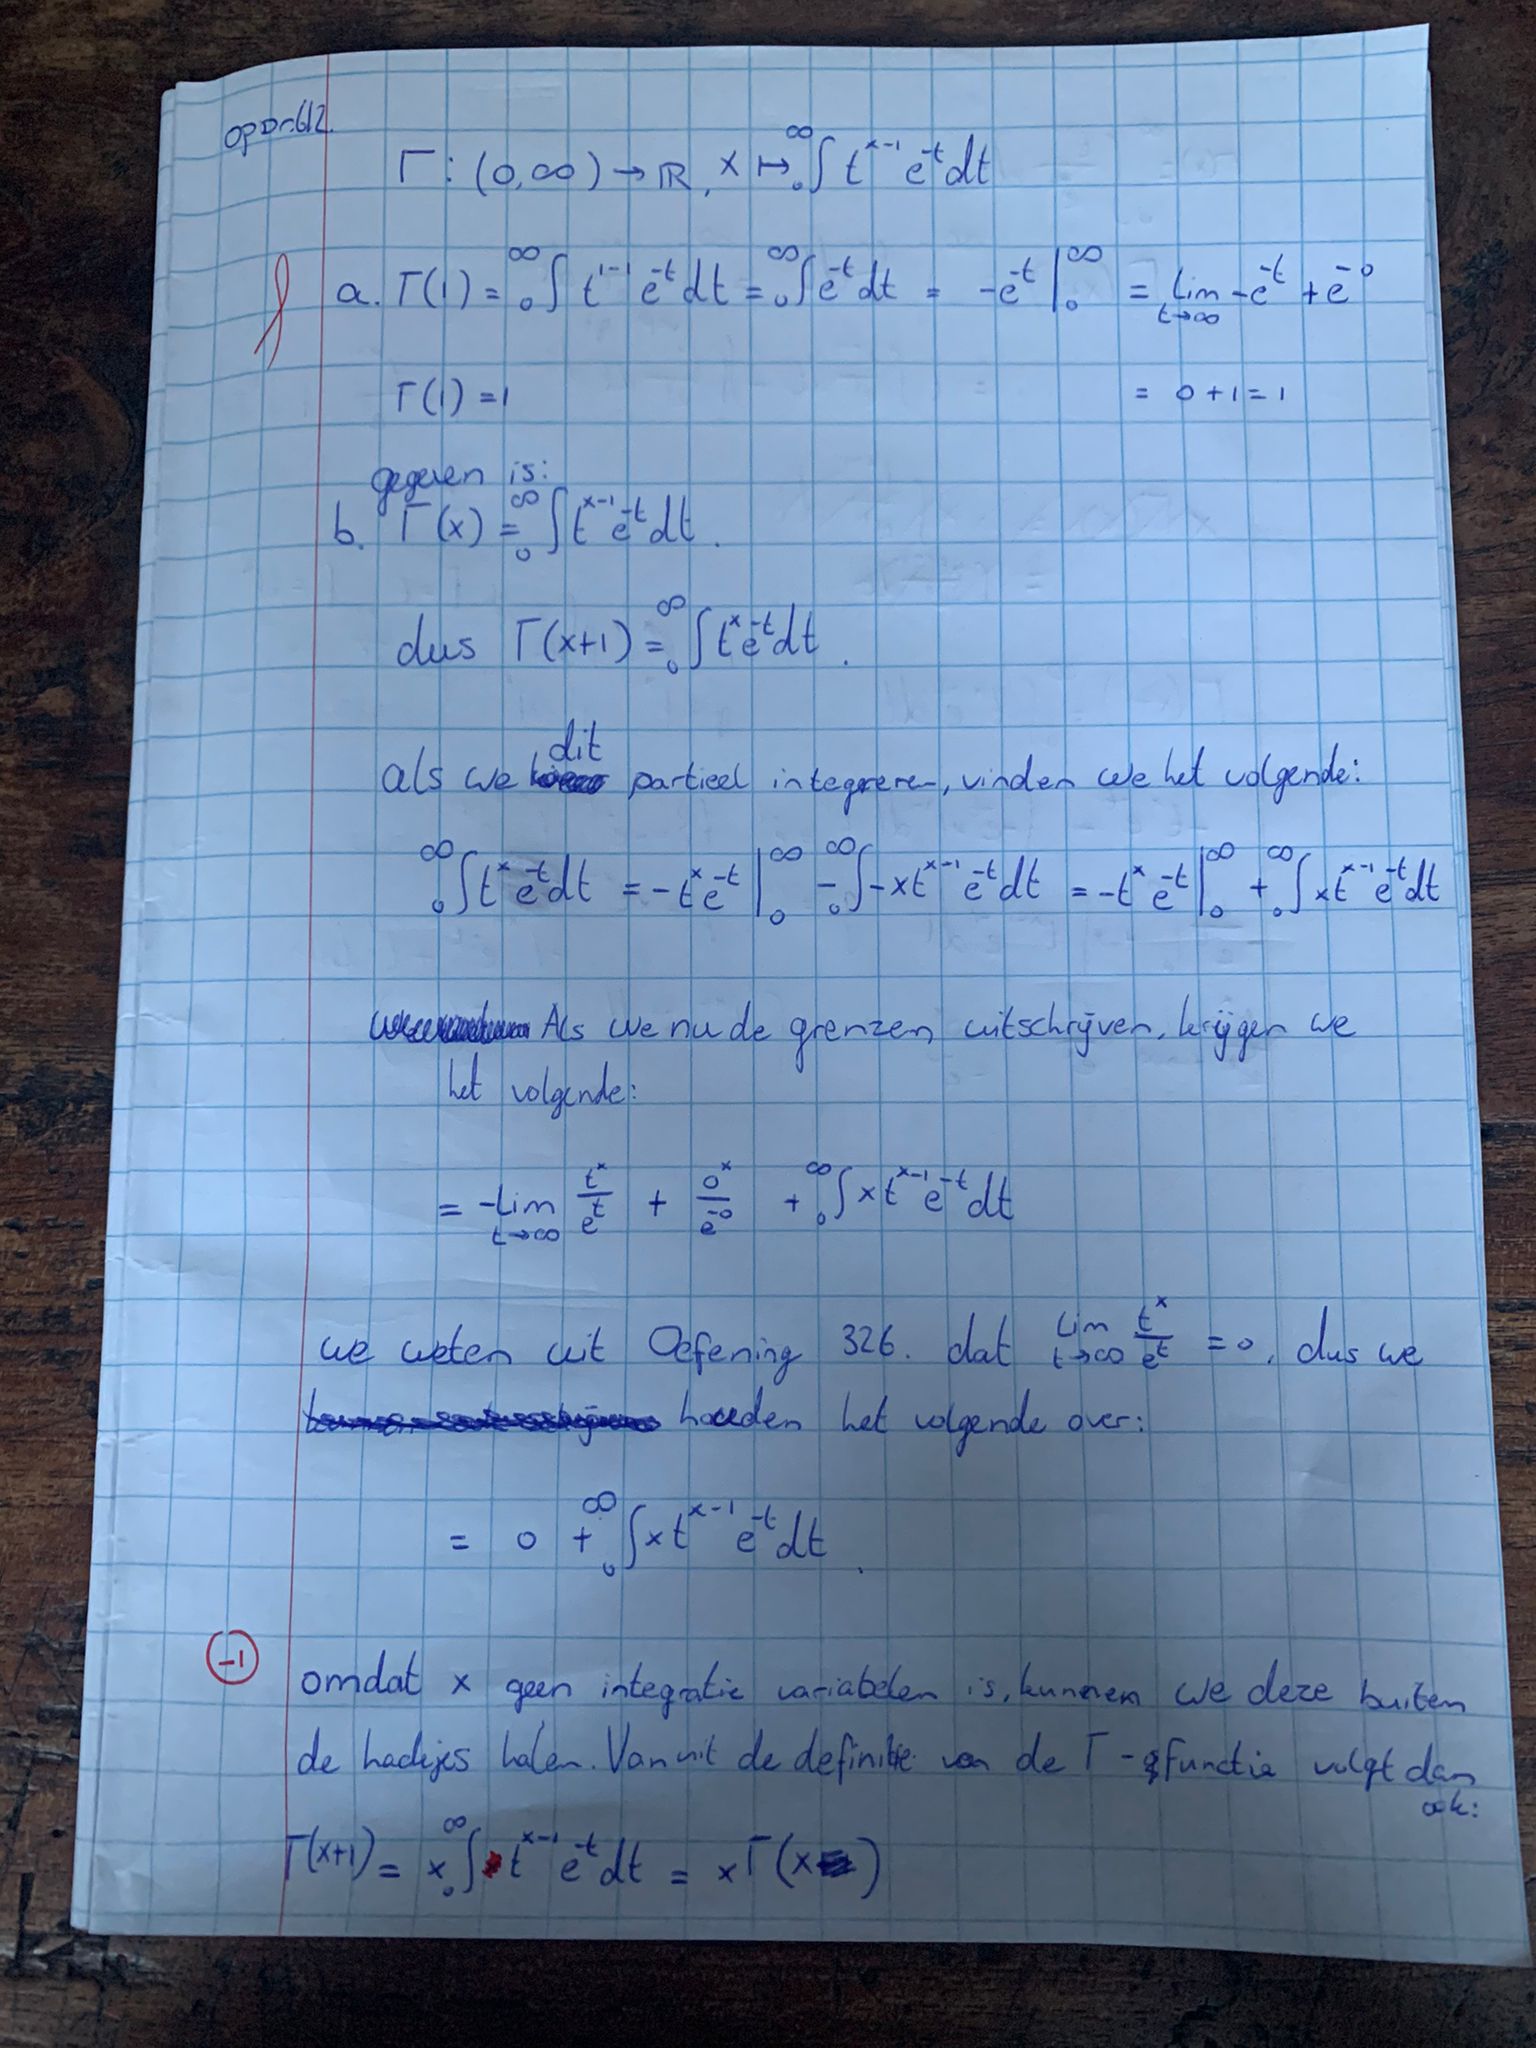 opdr.612
Γ : (0,∞) → ℝ, x ↦ ₀∫^∞ t^{x-1} e^{-t} dt
a. Γ(1) = ₀∫^∞ t^{1-1} e^{-t} dt = ₀∫^∞ e^{-t} dt = -e^{-t} |₀^∞ = lim_{t→∞} -e^{-t} + e^{-0}
Γ(1) = 1 = 0 + 1 = 1
gegeven is:
b. Γ(x) = ₀∫^∞ t^{x-1} e^{-t} dt.
dus Γ(x+1) = ₀∫^∞ t^x e^{-t} dt.
als we dit partieel integreren, vinden we het volgende:
₀∫^∞ t^x e^{-t} dt = -t^x e^{-t} |₀^∞ - ₀∫^∞ -x t^{x-1} e^{-t} dt = -t^x e^{-t} |₀^∞ + ₀∫^∞ x t^{x-1} e^{-t} dt
Als we nu de grenzen uitschrijven, krijgen we
het volgende:
= -lim_{t→∞} t^x/e^t + 0^x/e^{-0} + ₀∫^∞ x t^{x-1} e^{-t} dt
we weten uit Oefening 326. dat lim_{t→∞} t^x/e^t = 0, dus we
houden het volgende over:
= 0 + ₀∫^∞ x t^{x-1} e^{-t} dt.
-1
omdat x geen integratie variabelen is, kunnen we deze buiten
de haakjes halen. Vanuit de definitie van de Γ-functie volgt dan
ook:
Γ(x+1) = x ₀∫^∞ t^{x-1} e^{-t} dt = xΓ(x)